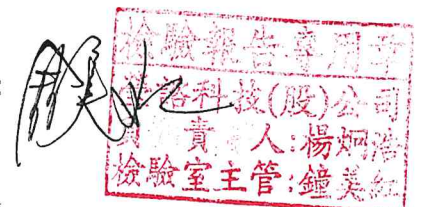 檢驗報告專用章
諮科技(股)公司
責人:楊炯浩
檢驗室主管:鐘美紅